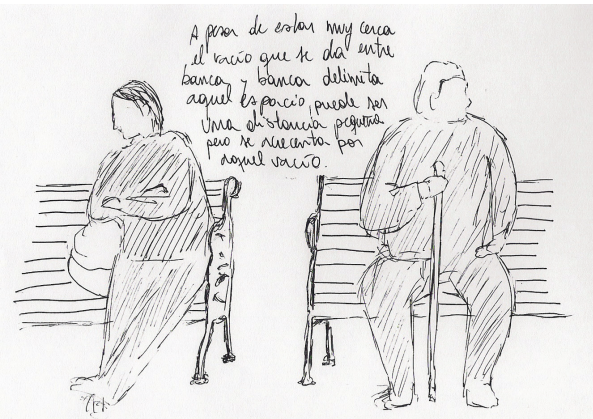 A pesar de estar muy cerca
el vacío que se da entre
banca y banca delimita
aquel espacio, puede ser
una distancia pequeña
pero se acrecenta por
aquel vacío.